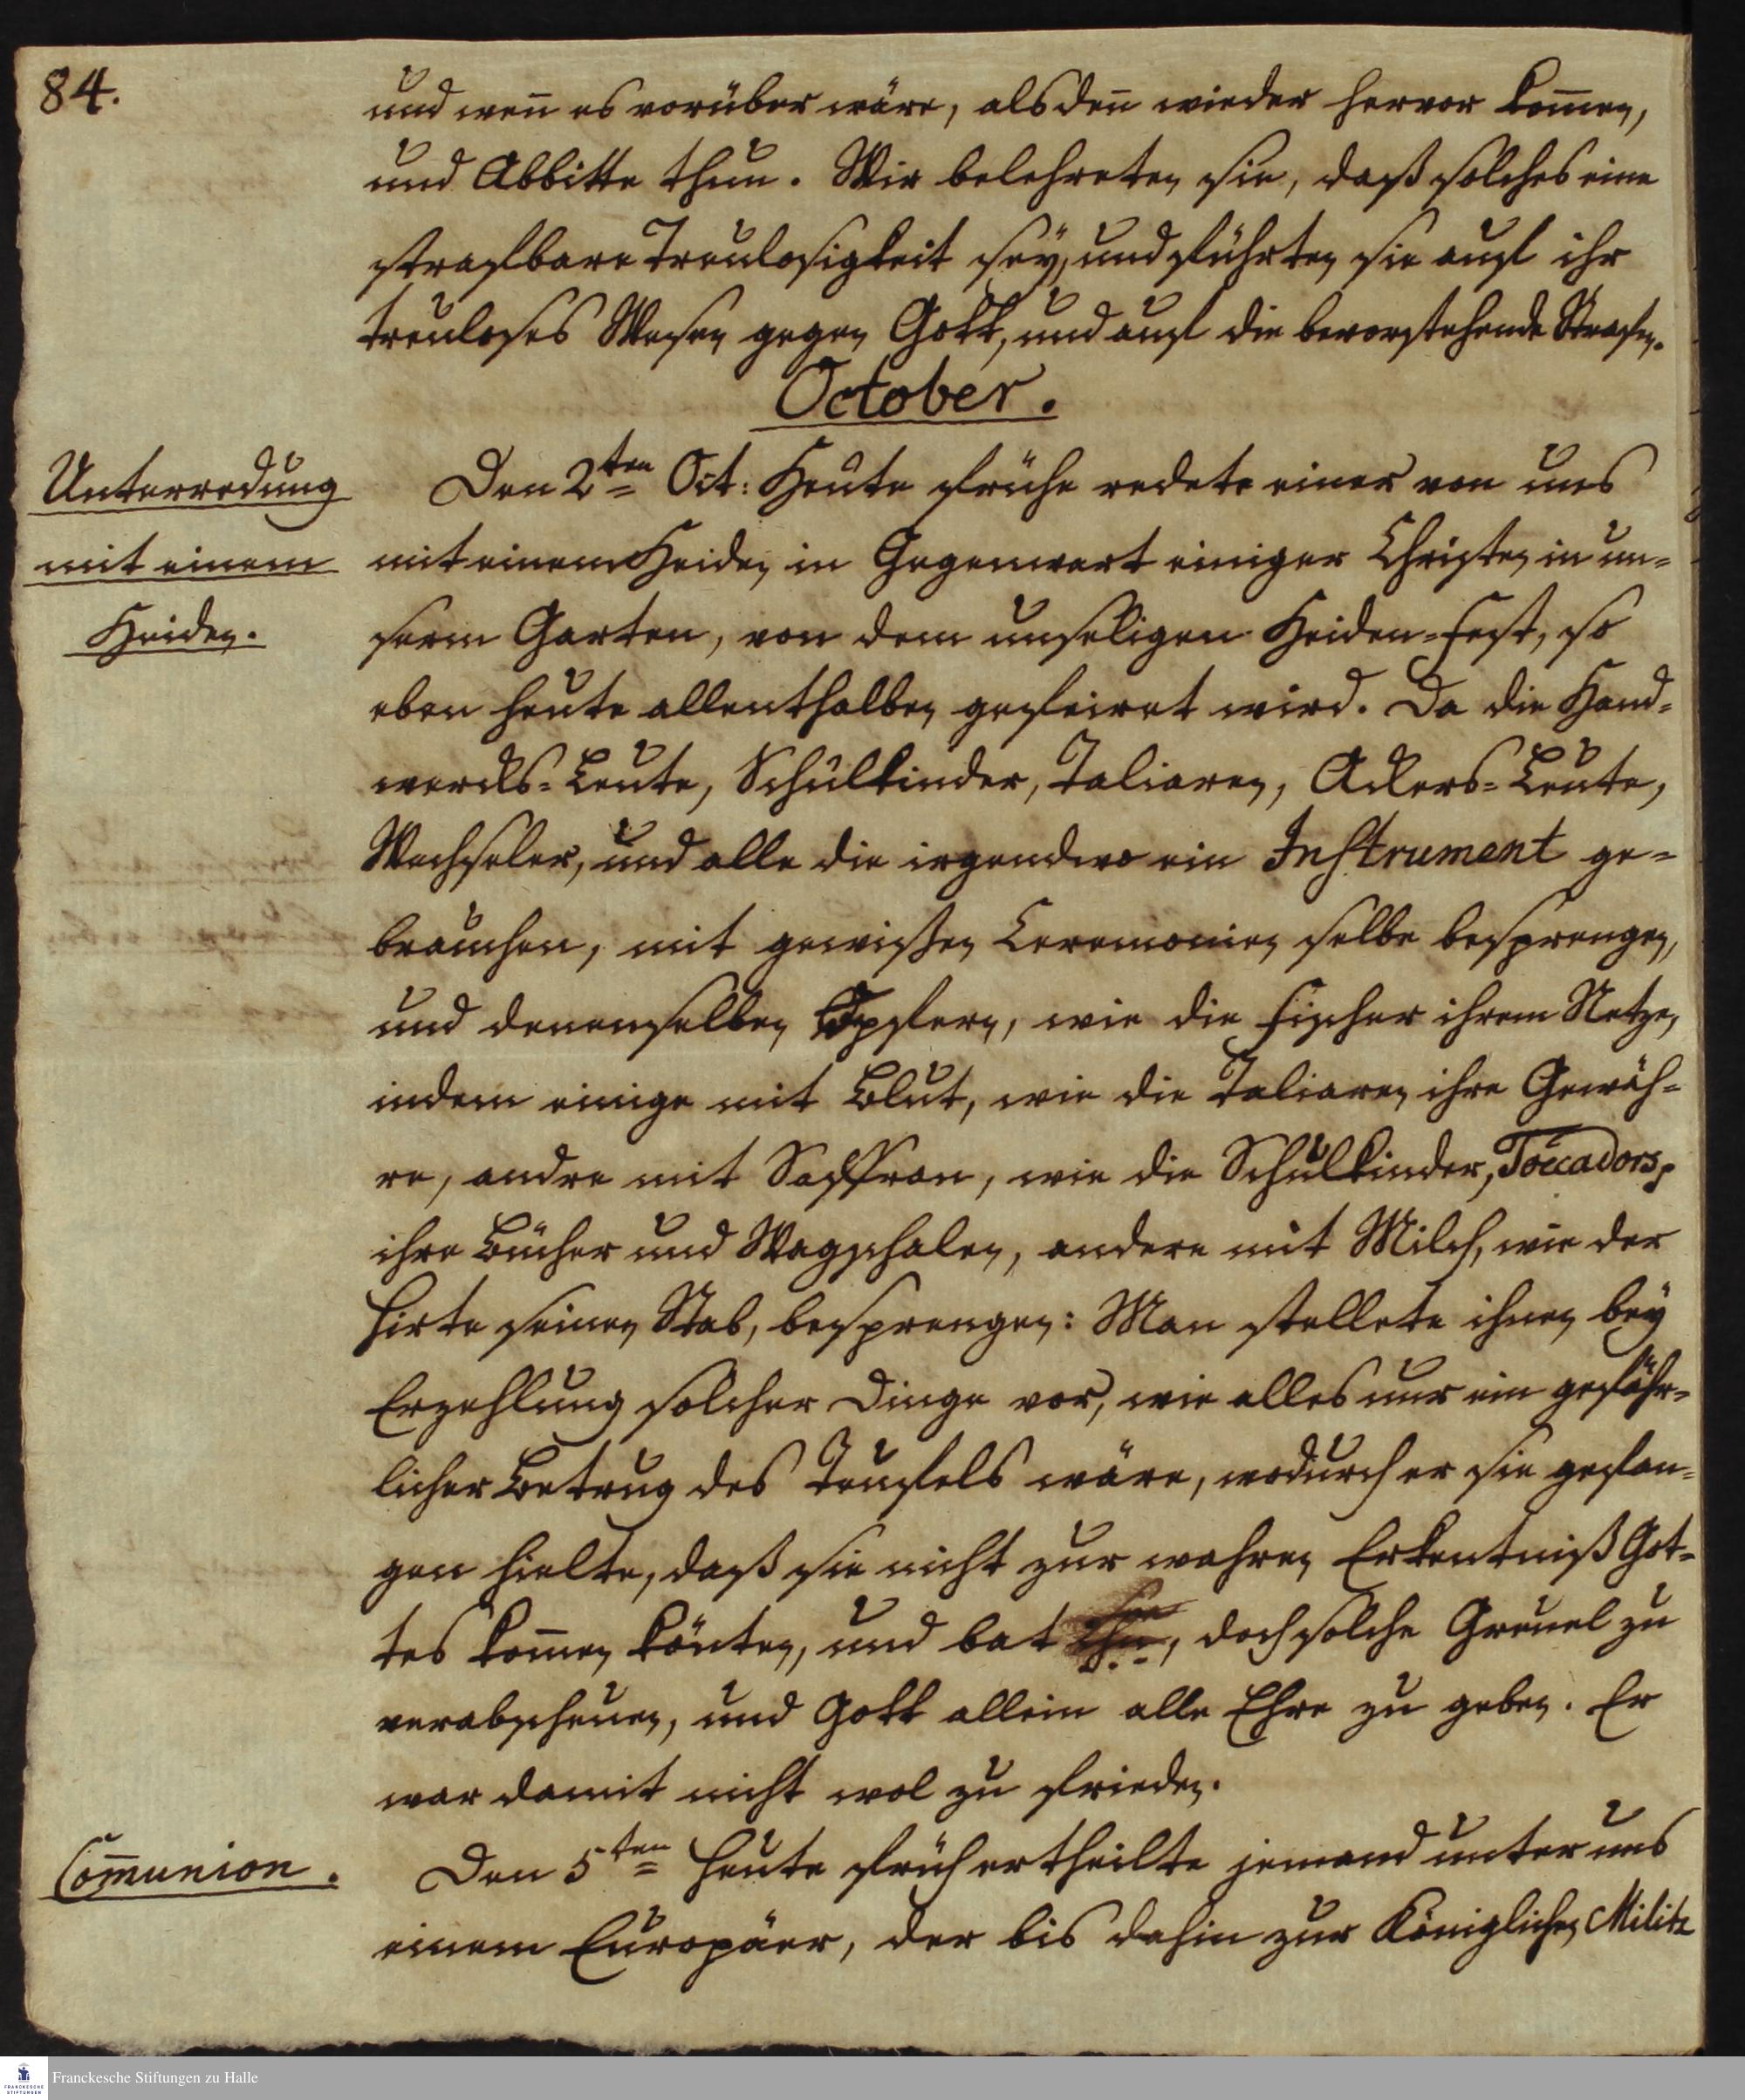 84.
und weñ es vorüber wäre, alsdeñ wieder hervor kom̃en,
und Abbitte thun. Wir belehreten sie, daß solches eine
strafbare Treulosigkeit sey, und führten sie auf ihr
treuloses Wesen gegen Gott, und auf die bevorstehende Strafen.
October.
Unterredung
mit einem
Heiden.
Den 2ten Oct: Heute frühe redete einer von uns
mit einem Heiden in Gegenwart einiger Christen in un=
serm Garten, von dem unseligen Heiden=Fest, so
eben heute allenthalben gefeiret wird. Da die Hand=
wercks=Leute, Schulkinder, Taliaren, Ackers=Leute,
Wechseler, und alle die irgendwo ein Instrument ge=
brauchen, mit gewißen Ceremonien selbe besprengen,
und denenselben Opfern, wie die Fischer ihrem Netze,
indem einige mit Blut, wie die Taliaren ihre Gewäh=
re, andre mit Saffran, wie die Schulkinder, Toccadors,
ihre Bücher und Wagschalen, andere mit Milch, wie der
Hirte seinen Stab, besprengen: Man stellete ihnen bey
Erzehlung solcher Dinge vor, wie alles nur ein gefähr=
licher Betrug des Teufels wäre, wodurch er sie gefan=
gen hielte, daß sie nicht zur wahren Erkentniß Got=
tes kom̃en könten, und bat ihn, doch solche Greuel zu
verabscheuen, und Gott allein alle Ehre zu geben. Er
war damit nicht wol zu frieden.
Com̃union.
Den 5ten Heute früh ertheilte jemand unter uns
einem Europäer, der bis dahin zur Königlichen Militz
Franckesche Stiftungen zu Halle
FRANCKESCHE
STIFTUNGEN